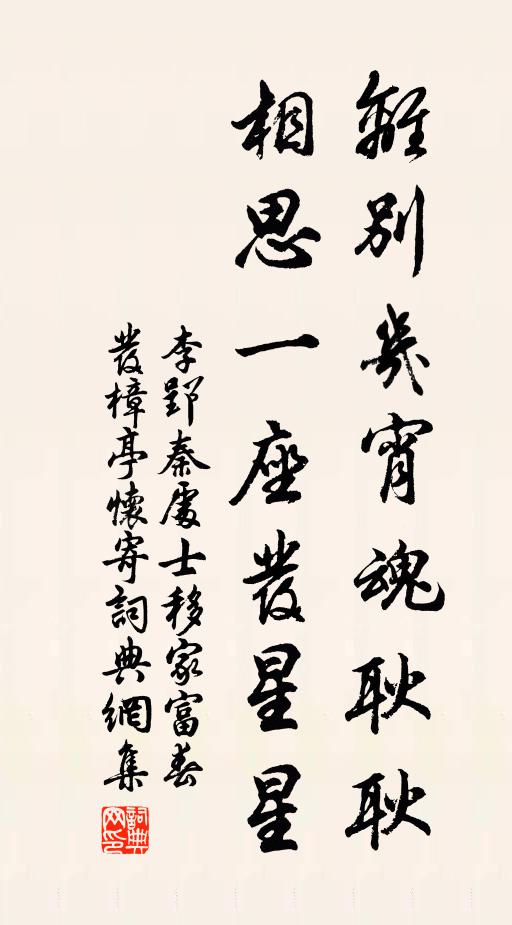 離別幾宵魂耿耿
相思一座發星星
李郢秦處士移家富春
發樟亭懷寄詞典網集
詞典
網印